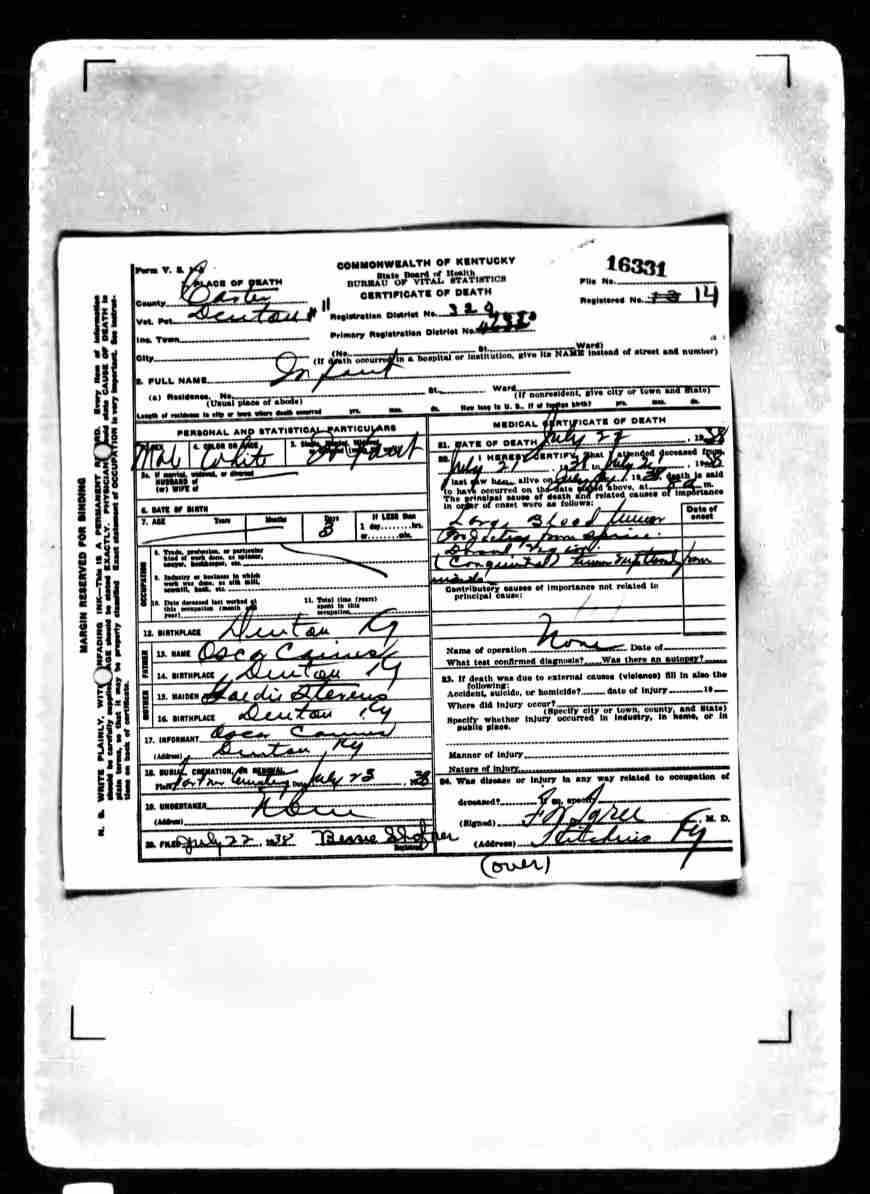 Form V. S.
COMMONWEALTH OF KENTUCKY
State Board of Health
BUREAU OF VITAL STATISTICS
CERTIFICATE OF DEATH
16331
File No.
Registered No. 13 14
PLACE OF DEATH
County Carter
Vot. Pct. Denton #11
Registration District No. 329
Primary Registration District No.
Inc. Town
City
(No. St. Ward)
(If death occurred in a hospital or institution, give its NAME instead of street and number)
2. FULL NAME Infant
(a) Residence. No. St. Ward
(Usual place of abode) (If nonresident, give city or town and State)
Length of residence in city or town where death occurred yrs. mos. ds. How long in U. S., if of foreign birth? yrs. mos. ds.
PERSONAL AND STATISTICAL PARTICULARS
SEX 4. COLOR OR RACE 5. Single, Married, Widowed
Mal White Infant
5a. If married, widowed, or divorced
HUSBAND of
(or) WIFE of
6. DATE OF BIRTH
7. AGE Years Months Days If LESS than
1 day hrs.
or min.
3
OCCUPATION
8. Trade, profession, or particular
kind of work done, as spinner,
sawyer, bookkeeper, etc.
9. Industry or business in which
work was done, as silk mill,
sawmill, bank, etc.
10. Date deceased last worked at
this occupation (month and
year)
11. Total time (years)
spent in this
occupation
12. BIRTHPLACE Denton Ky
FATHER
13. NAME Osca
14. BIRTHPLACE Denton Ky
MOTHER
15. MAIDEN Stevens
16. BIRTHPLACE Denton Ky
17. INFORMANT Osca
(Address) Denton Ky
18. BURIAL, CREMATION, OR REMOVAL
Place Cemetery July 23, 1938
19. UNDERTAKER None
(Address)
20. FILED July 22, 1938 Bessie
Registrar
MEDICAL CERTIFICATE OF DEATH
21. DATE OF DEATH July 22, 1938
22. I HEREBY CERTIFY, That I attended deceased from
July 21, 1938 to July 21, 1938
I last saw him alive on July 1938 death is said
to have occurred on the date stated above, at m.
The principal cause of death and related causes of importance
in order of onset were as follows:
Date of
onset
Large Blood tumor
from spine
(Congenital) from
Contributory causes of importance not related to
principal cause:
Name of operation None Date of
What test confirmed diagnosis? Was there an autopsy?
23. If death was due to external causes (violence) fill in also the
following:
Accident, suicide, or homicide? date of injury 19
Where did injury occur?
(Specify city or town, county, and State)
Specify whether injury occurred in industry, in home, or in
public place.
Manner of injury
Nature of injury
24. Was disease or injury in any way related to occupation of
deceased? If so, specify
(Signed) M. D.
(Address) Ky
(over)
MARGIN RESERVED FOR BINDING
N. B. WRITE PLAINLY, WITH UNFADING INK—This is A PERMANENT RECORD. Every item of information
should be carefully supplied. AGE should be stated EXACTLY. PHYSICIANS should state CAUSE OF DEATH in
plain terms, so that it may be properly classified. Exact statement of OCCUPATION is very important. See instruc-
tions on back of certificate.